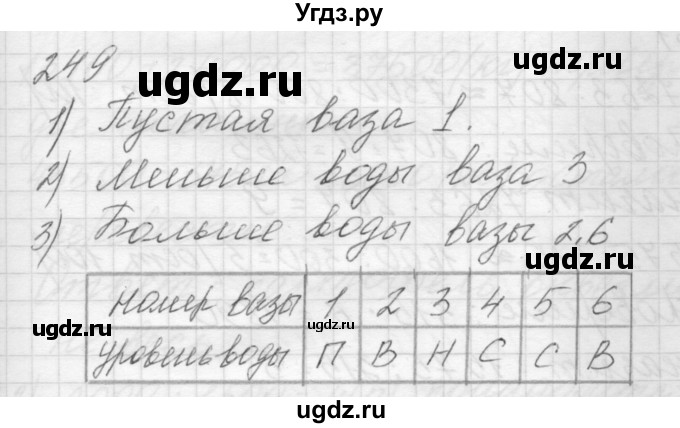 Угдз.ру
249
ugdz.ru
ugdz.ru
1) Пустая ваза 1.
2) Меньше воды ваза 3
3) Больше воды вазы 2,6
ugdz.ru
Номер вазы 1 2 3 4 5 6
ugdz.ru ugdz.ru ugdz.ru
Уровень воды П В Н С С В
ugdz.ru